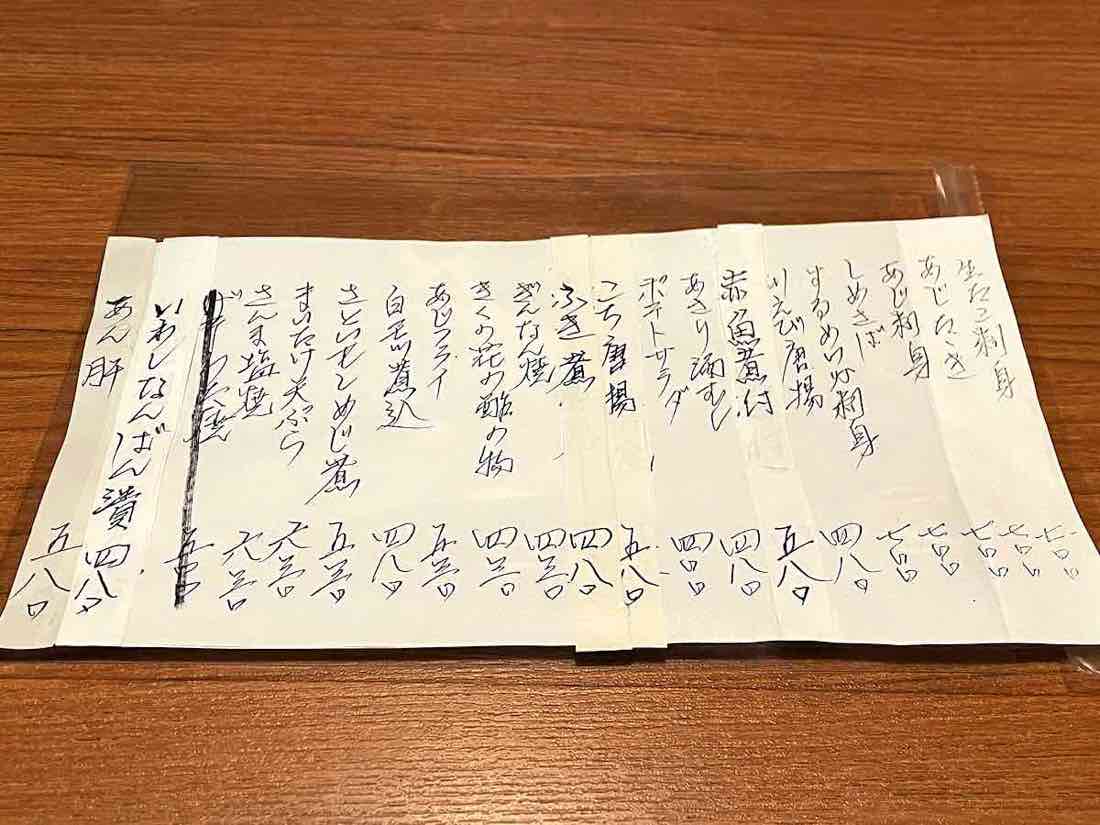 生たこ刺身 七〇〇
あじたたき 七〇〇
あじ刺身 七〇〇
しめさば 七〇〇
するめいか刺身 七〇〇
川えび唐揚 四八〇
赤魚煮付 五八〇
あさり酒むし 四八〇
ポテトサラダ 四〇〇
こち唐揚 五八〇
ふき煮 四八〇
ぎんなん焼 四五〇
きくの花の酢の物 四五〇
あじフライ 五五〇
白モツ煮込 四八〇
さといもしめじ煮 五五〇
まいたけ天ぷら 六五〇
さんま塩焼 六五〇
いわしなんばん漬 四八〇
あん肝 五八〇